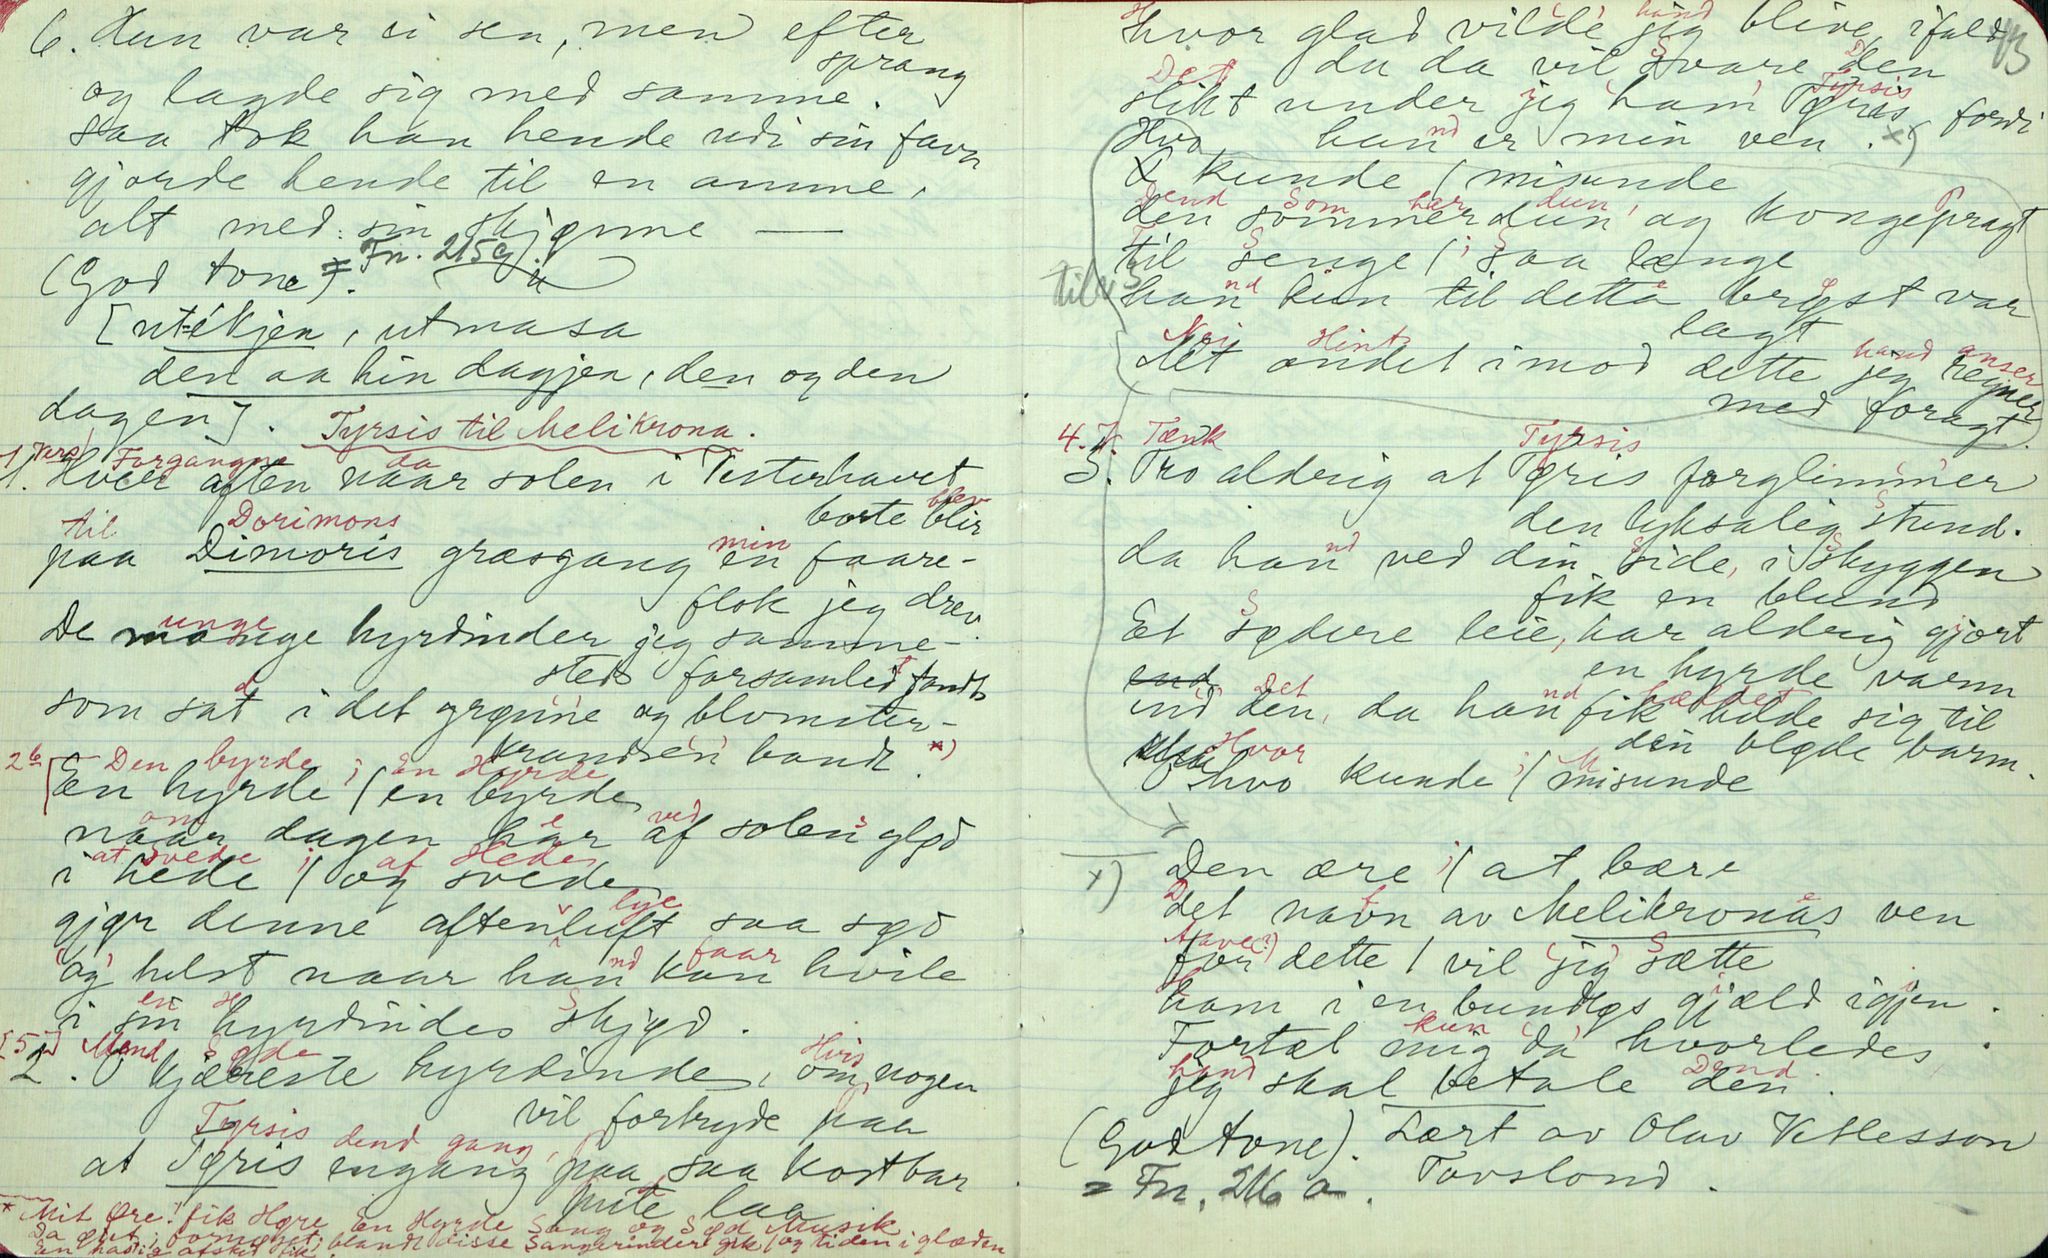 6. Hun var ei sen, men efter
sprang
og lagde sig med samme.
saa tok han hende udi sin favn
gjorde hende til en amme,
alt med sin skjønne —
(God tone). = Fn. 215 a
[ut-ékjen, utmasa
den aa hin dagjen, den og den
dagen].
Tyrsis til Melikrona.
1. Vers Forgangne da
1. Hver aften naar solen i Vesterhavet
borte blir blev
til Dorimons min
paa Dimoris græsgang en faare-
flok jeg drev.
unge
De mange hyrdinder jeg samme-
steds forsamled fandt
som sat i det grønne og blomster-
krandsen bandt. *)
2b Den byrde ; En Hyrde
En hyrde / en byrde
om e ved s
naar dagen har af solen glød
at svede ; af Hede
i hede / og svede
lye
gjør denne aftenluft saa sød
nd faar
og helst naar han kan hvile
en H S
i sin hyrdindes skjød.
[5] Mend Søde Hvis
2. O kjæreste hyrdinde, om nogen
vil fortryde paa
Tyrsis dend gang,
at Tøris engang paa saa kostbar
pute laa
* Mit Øre! fik Høre En Hyrde Sang og Sød Musik
Da Øret, fornøyet, blandt disse Sangerinder gik / og tiden i glæden
En hastig afsked fik.
43
hand
hvor glad vilde jeg blive, ifald
du da vil svare den
Det Tyrsis
slikt under jeg ham Tøris, fordi
han er min ven. x)
Hvo
kunde / misunde
Dend Som her dun,
den sommerdun og kongepragt
til senge / saa længe
til v. 3
han kun til dette bryst var
lagt
Nei Hint hand anser
det andet imod dette jeg regner
med foragt.
4. 7. Tænk Tyrsis
3. Tro aldrig at Tøris forglimmer
den lyksalig stund.
da han ved din side, i skyggen
fik en blund
Et sødere leie, har aldrig gjort
en hyrde varm
end
Det nd hældet
end den, da han fik helde sig til
din bløde barm.
Hvor
hvo kunde / misunde
x) Den ære ; / at bære
det navn av Melikronas ven
Mave(?)
for dette / vil jeg sætte
ham i en bundløs gjæld igjen.
kun
Fortæl mig da hvorledes
hand Dend
jeg skal betale den.
(God tone). Lært av Olav Vetlesson
= Fn. 216 a. Tovslond.